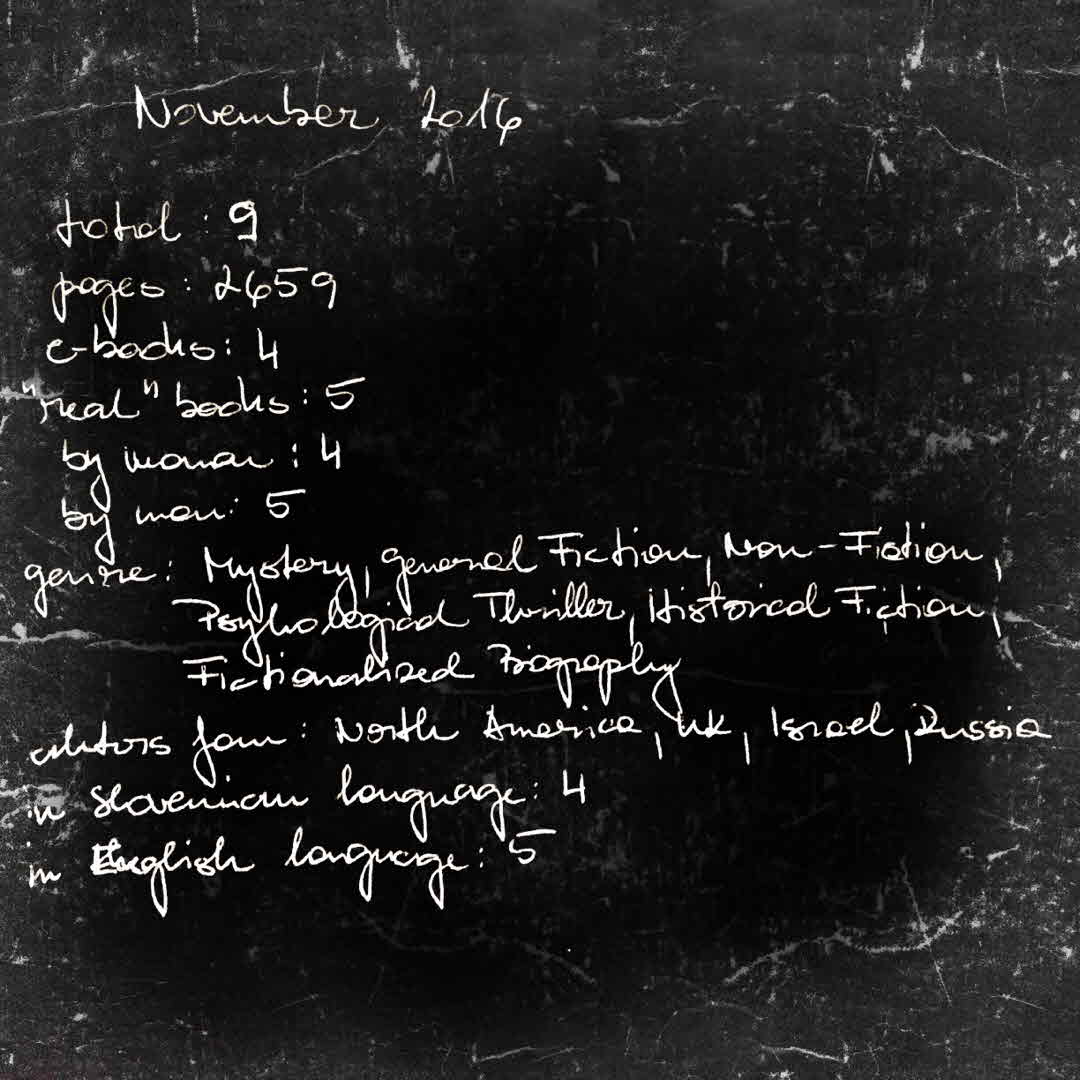 November 2016
total : 9
pages : 2659
e-books : 4
"real" books : 5
by woman : 4
by man : 5
genre : Mystery, general Fiction, Non-Fiction,
Psychological Thriller, Historical Fiction,
Fictionalized Biography
from : North America, UK, Israel, Russia
in slovenian language : 4
in English language : 5